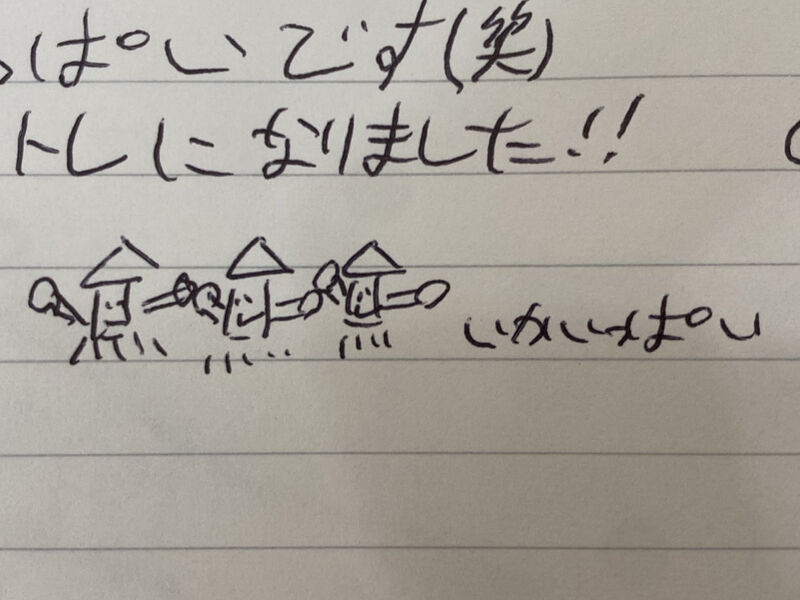 っぱいです(笑)
トレになりました!!
いかいっぱい